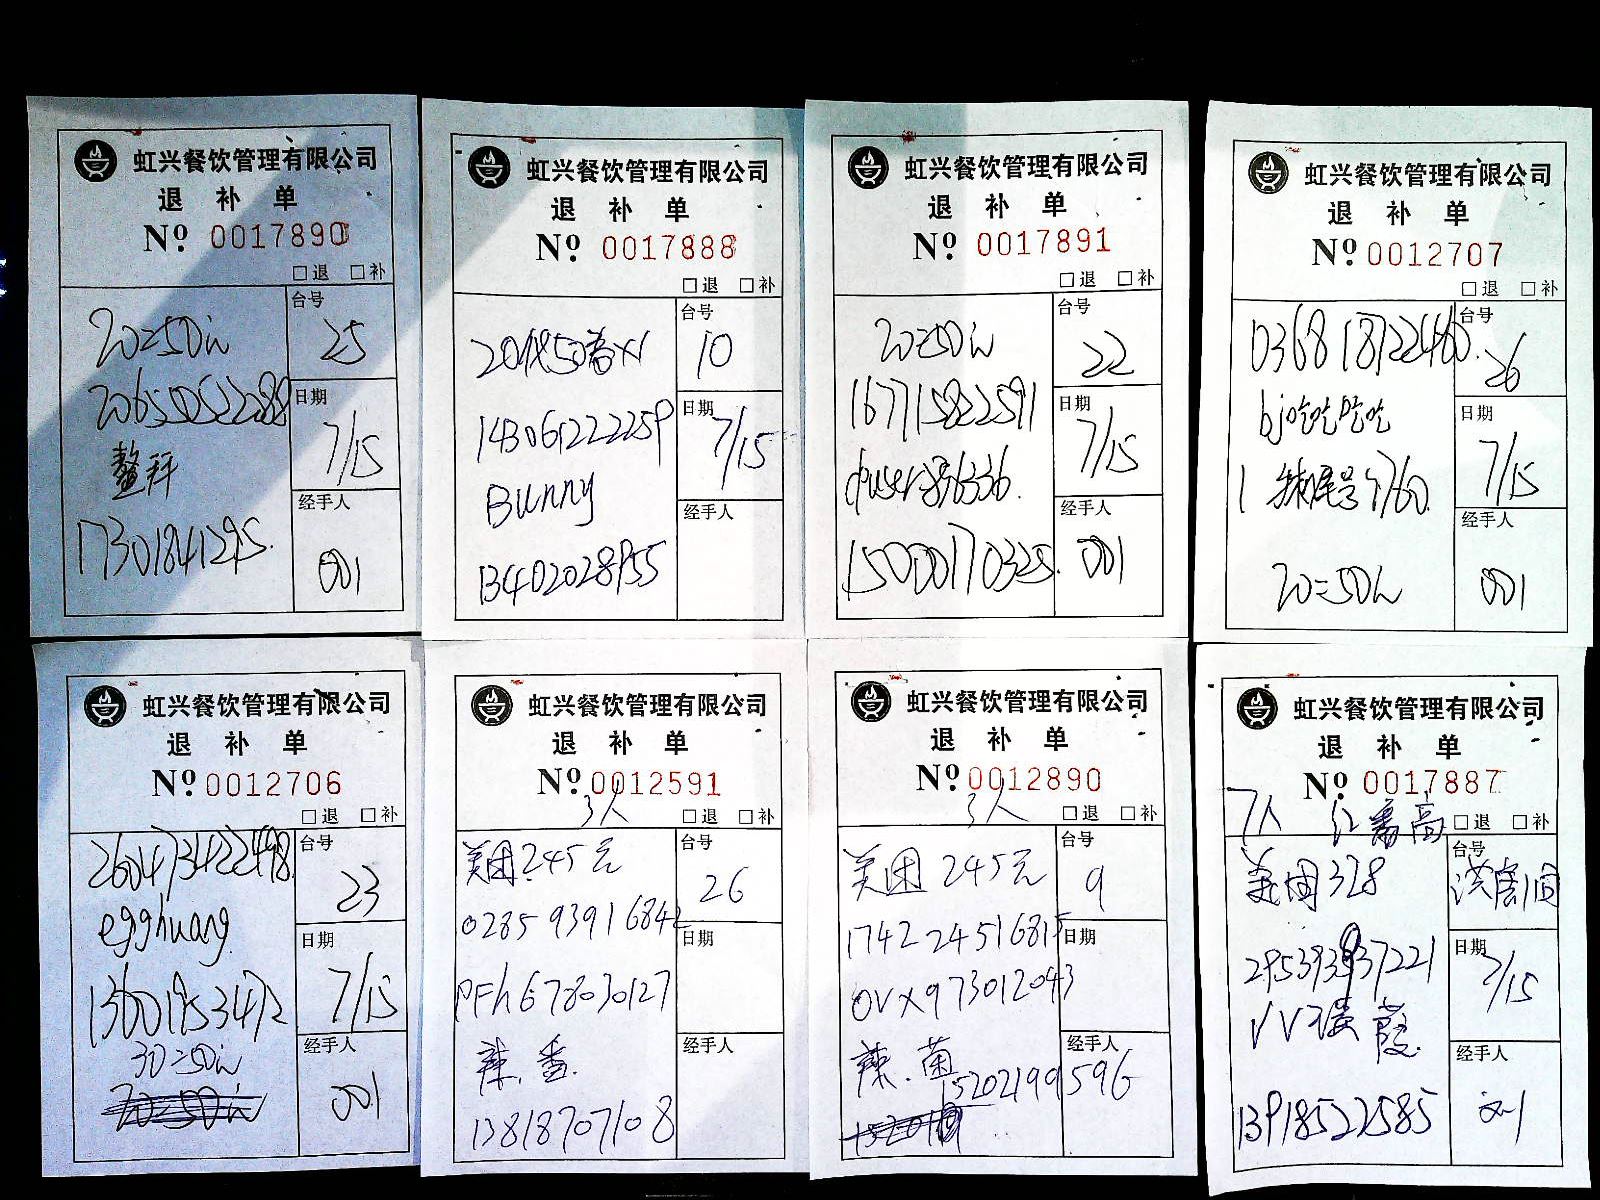 虹兴餐饮管理有限公司
退 补 单
Nº 0017890
□退 □补
台号
25
20=50
206550522288
日期
7/15
鳌拜
经手人
17301841295.
001
虹兴餐饮管理有限公司
退 补 单
Nº 0017888
□退 □补
台号
10
20代50 x1
日期
7/15
143061222259
Bunny
经手人
13402028955
虹兴餐饮管理有限公司
退 补 单
Nº 0017891
□退 □补
台号
22
20=50
167715822591
日期
7/15
6336.
经手人
15000170325.
001
虹兴餐饮管理有限公司
退 补 单
Nº 0012707
□退 □补
台号
26
0368 18722460.
bj吃吃吃吃
日期
7/15
尾号1760.
经手人
20=50
001
虹兴餐饮管理有限公司
退 补 单
Nº 0012706
□退 □补
台号
23
260473422498
egghuang
日期
7/15
13601953472
30=50
经手人
001
虹兴餐饮管理有限公司
退 补 单
Nº 0012591
3人
□退 □补
台号
26
美团245元
0285 93916842
日期
PFh678030127
辣.番.
经手人
13818707108
虹兴餐饮管理有限公司
退 补 单
Nº 0012890
3人
□退 □补
台号
9
美团 245元
1742 24516815
日期
OVX973012043
辣.菌
经手人
15202199596
虹兴餐饮管理有限公司
退 补 单
Nº 0017887
7人
□退 □补
台号
美团328
日期
7/15
295393937221
VV
经手人
13918522585